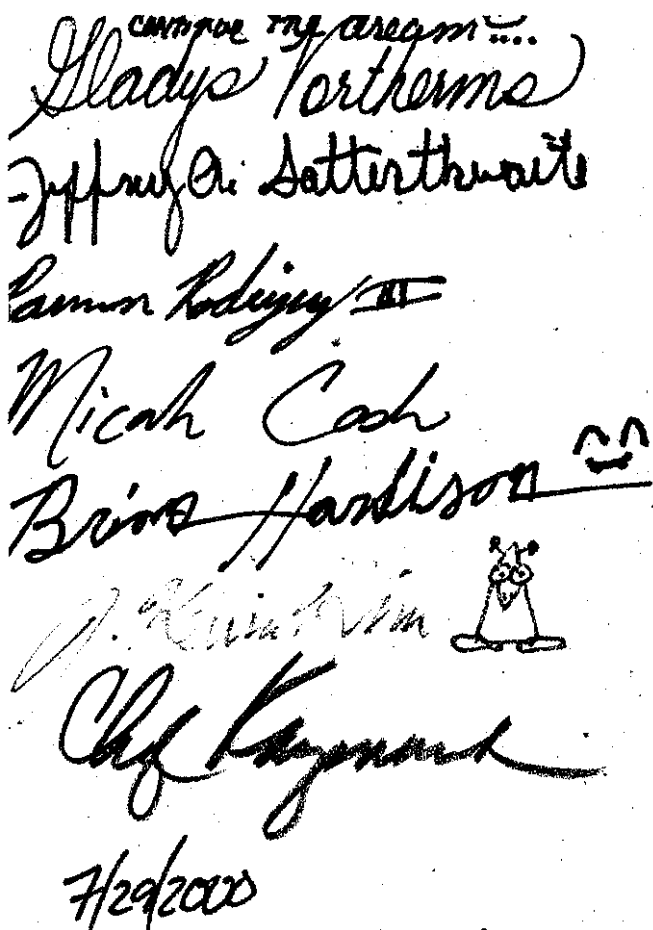 continue the dream....
Gladys Vortherms
Jeffrey Satterthwaite
Ramon Rodriguez III
Micah Cash
Brina Hardison
J.
Chef
7/29/2000